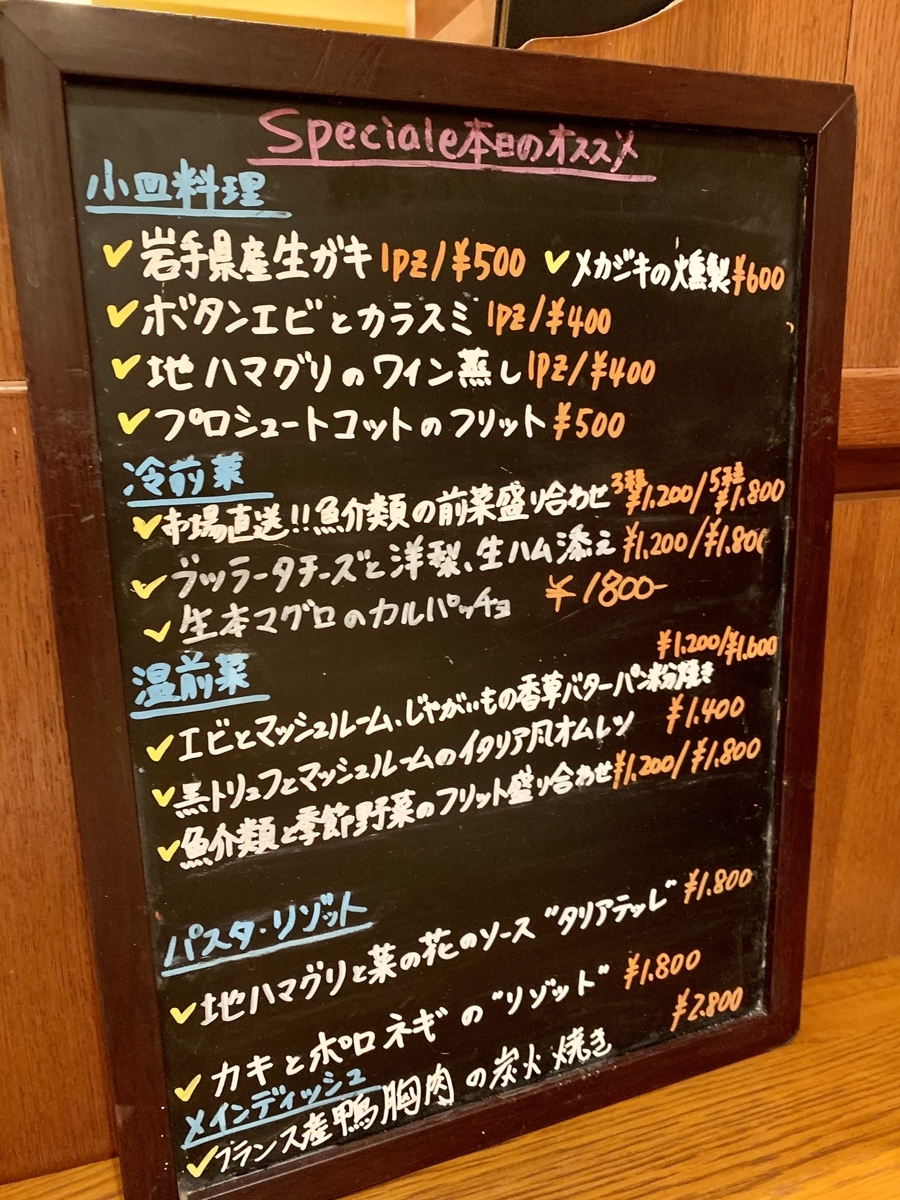 Speciale本日のオススメ
小皿料理
✓岩手県産生ガキ 1pz/¥500 ✓メカジキの燻製¥600
✓ボタンエビとカラスミ 1pz/¥400
✓地ハマグリのワイン蒸し 1pz/¥400
✓プロシュートコットのフリット ¥500
冷前菜
✓市場直送!!魚介類の前菜盛り合わせ 3種¥1,200/5種¥1,800
✓ブッラータチーズと洋梨、生ハム添え ¥1,200/¥1,800
✓生本マグロのカルパッチョ ¥1800-
温前菜
¥1,200/¥1,600
✓エビとマッシュルーム、じゃがいもの香草バターパン粉焼き
✓黒トリュフとマッシュルームのイタリア風オムレツ ¥1,400
✓魚介類と季節野菜のフリット盛り合わせ ¥1,200/¥1,800
パスタ・リゾット
✓地ハマグリと菜の花のソース "タリアテッレ" ¥1,800
✓カキとポロネギの"リゾット" ¥1,800
メインディッシュ
✓フランス産鴨胸肉の炭火焼き ¥2,800